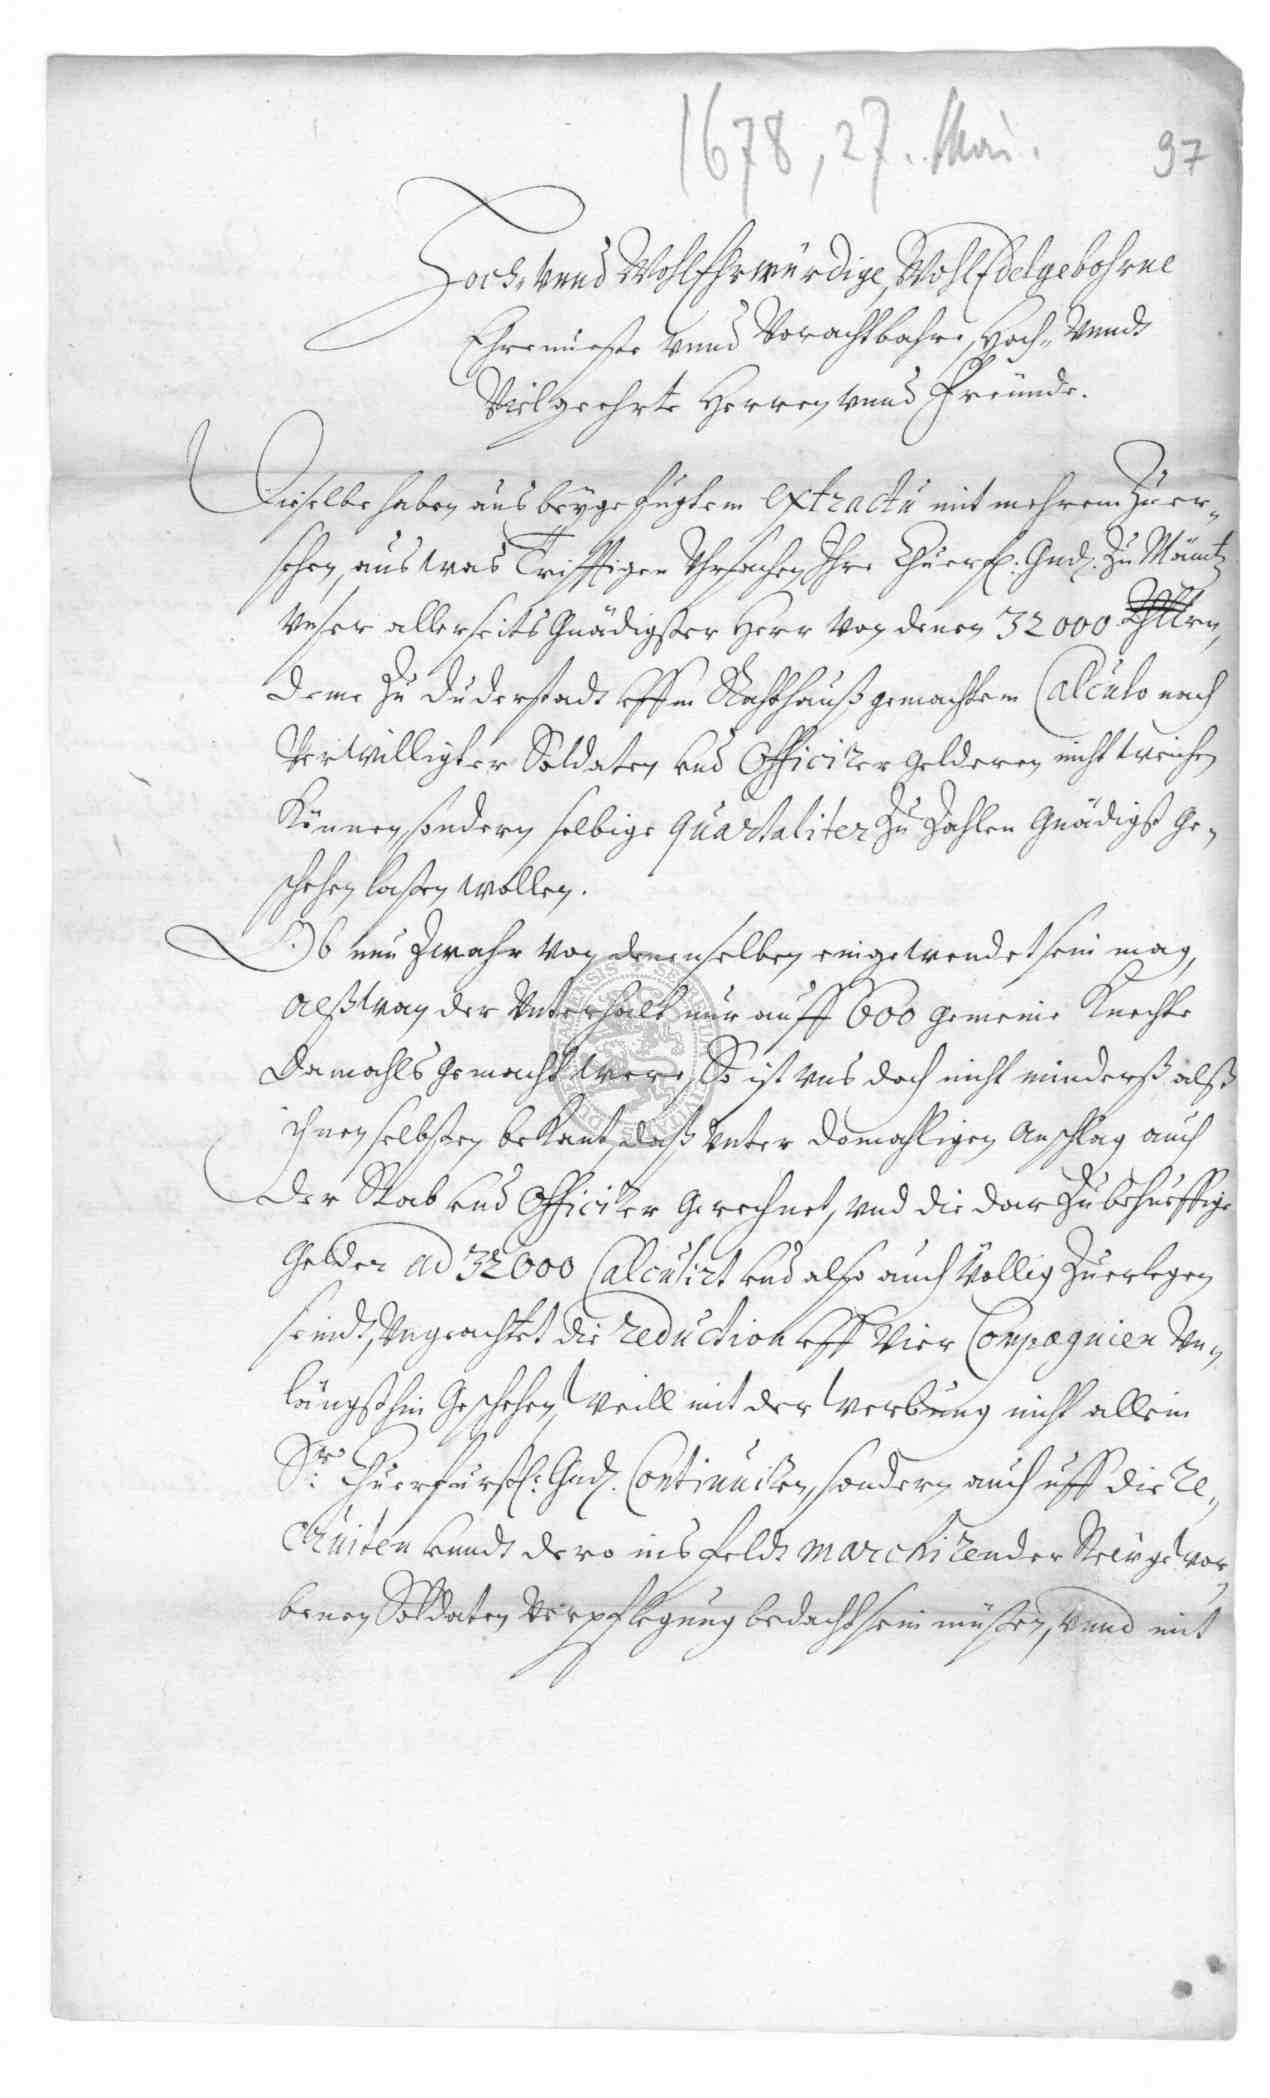 1678, 27. Mai.
97
Hoch- vnnd WohlEhrwürdige, WohlEdelgebohrne
Ehrnueste vnnd Vorachtbahre, Hoch- vnndt
Vielgeehrte Herren vnnd Freünde.
Dieselbe haben aus beygefügtem extractu mit mehrem Zu er-
sehen, aus was Trifftigen Vhrsachen Ihre Churf. Gnd. Zu Maintz
vnser allerseits Gnädigster Herr von denen 32000
deme Zu Duderstadt vffm Rahthauß gemachtem Calculo nach
Verwilligter Soldaten vnd Officirer gelderen nicht weichen
können, sondern selbige quartaliter Zu Zahlen Gnädigst ge-
schehen laßen wollen.
Ob nun Zwahr von denenselben eingewendet sein mag,
alß wan der Vnterhalt nur auff 600 gemeine Knechte
damahls gemacht were, So ist vns doch nicht minderß alß
ihnen selbsten bekant, daß vnter domahligen Anschlag auch
der Stab vnd Officirer gerechnet, vnd die darZu behueffige
Gelder ad 32000 Calculirt vnd also auch völlig Zuerlegen
seindt, Vngeachtet die reduction vff Vier Compagnien Vn-
längsthin geschehen, weill mit der werbung nicht allein
Sr. Churfürstl. Gnd. Continuiren, sondern auch vff die re-
cruiten vnndt dero ins feldt marchirender Neugewor-
benen Soldaten Verpflegung bedacht sein müßen, vnnd mit